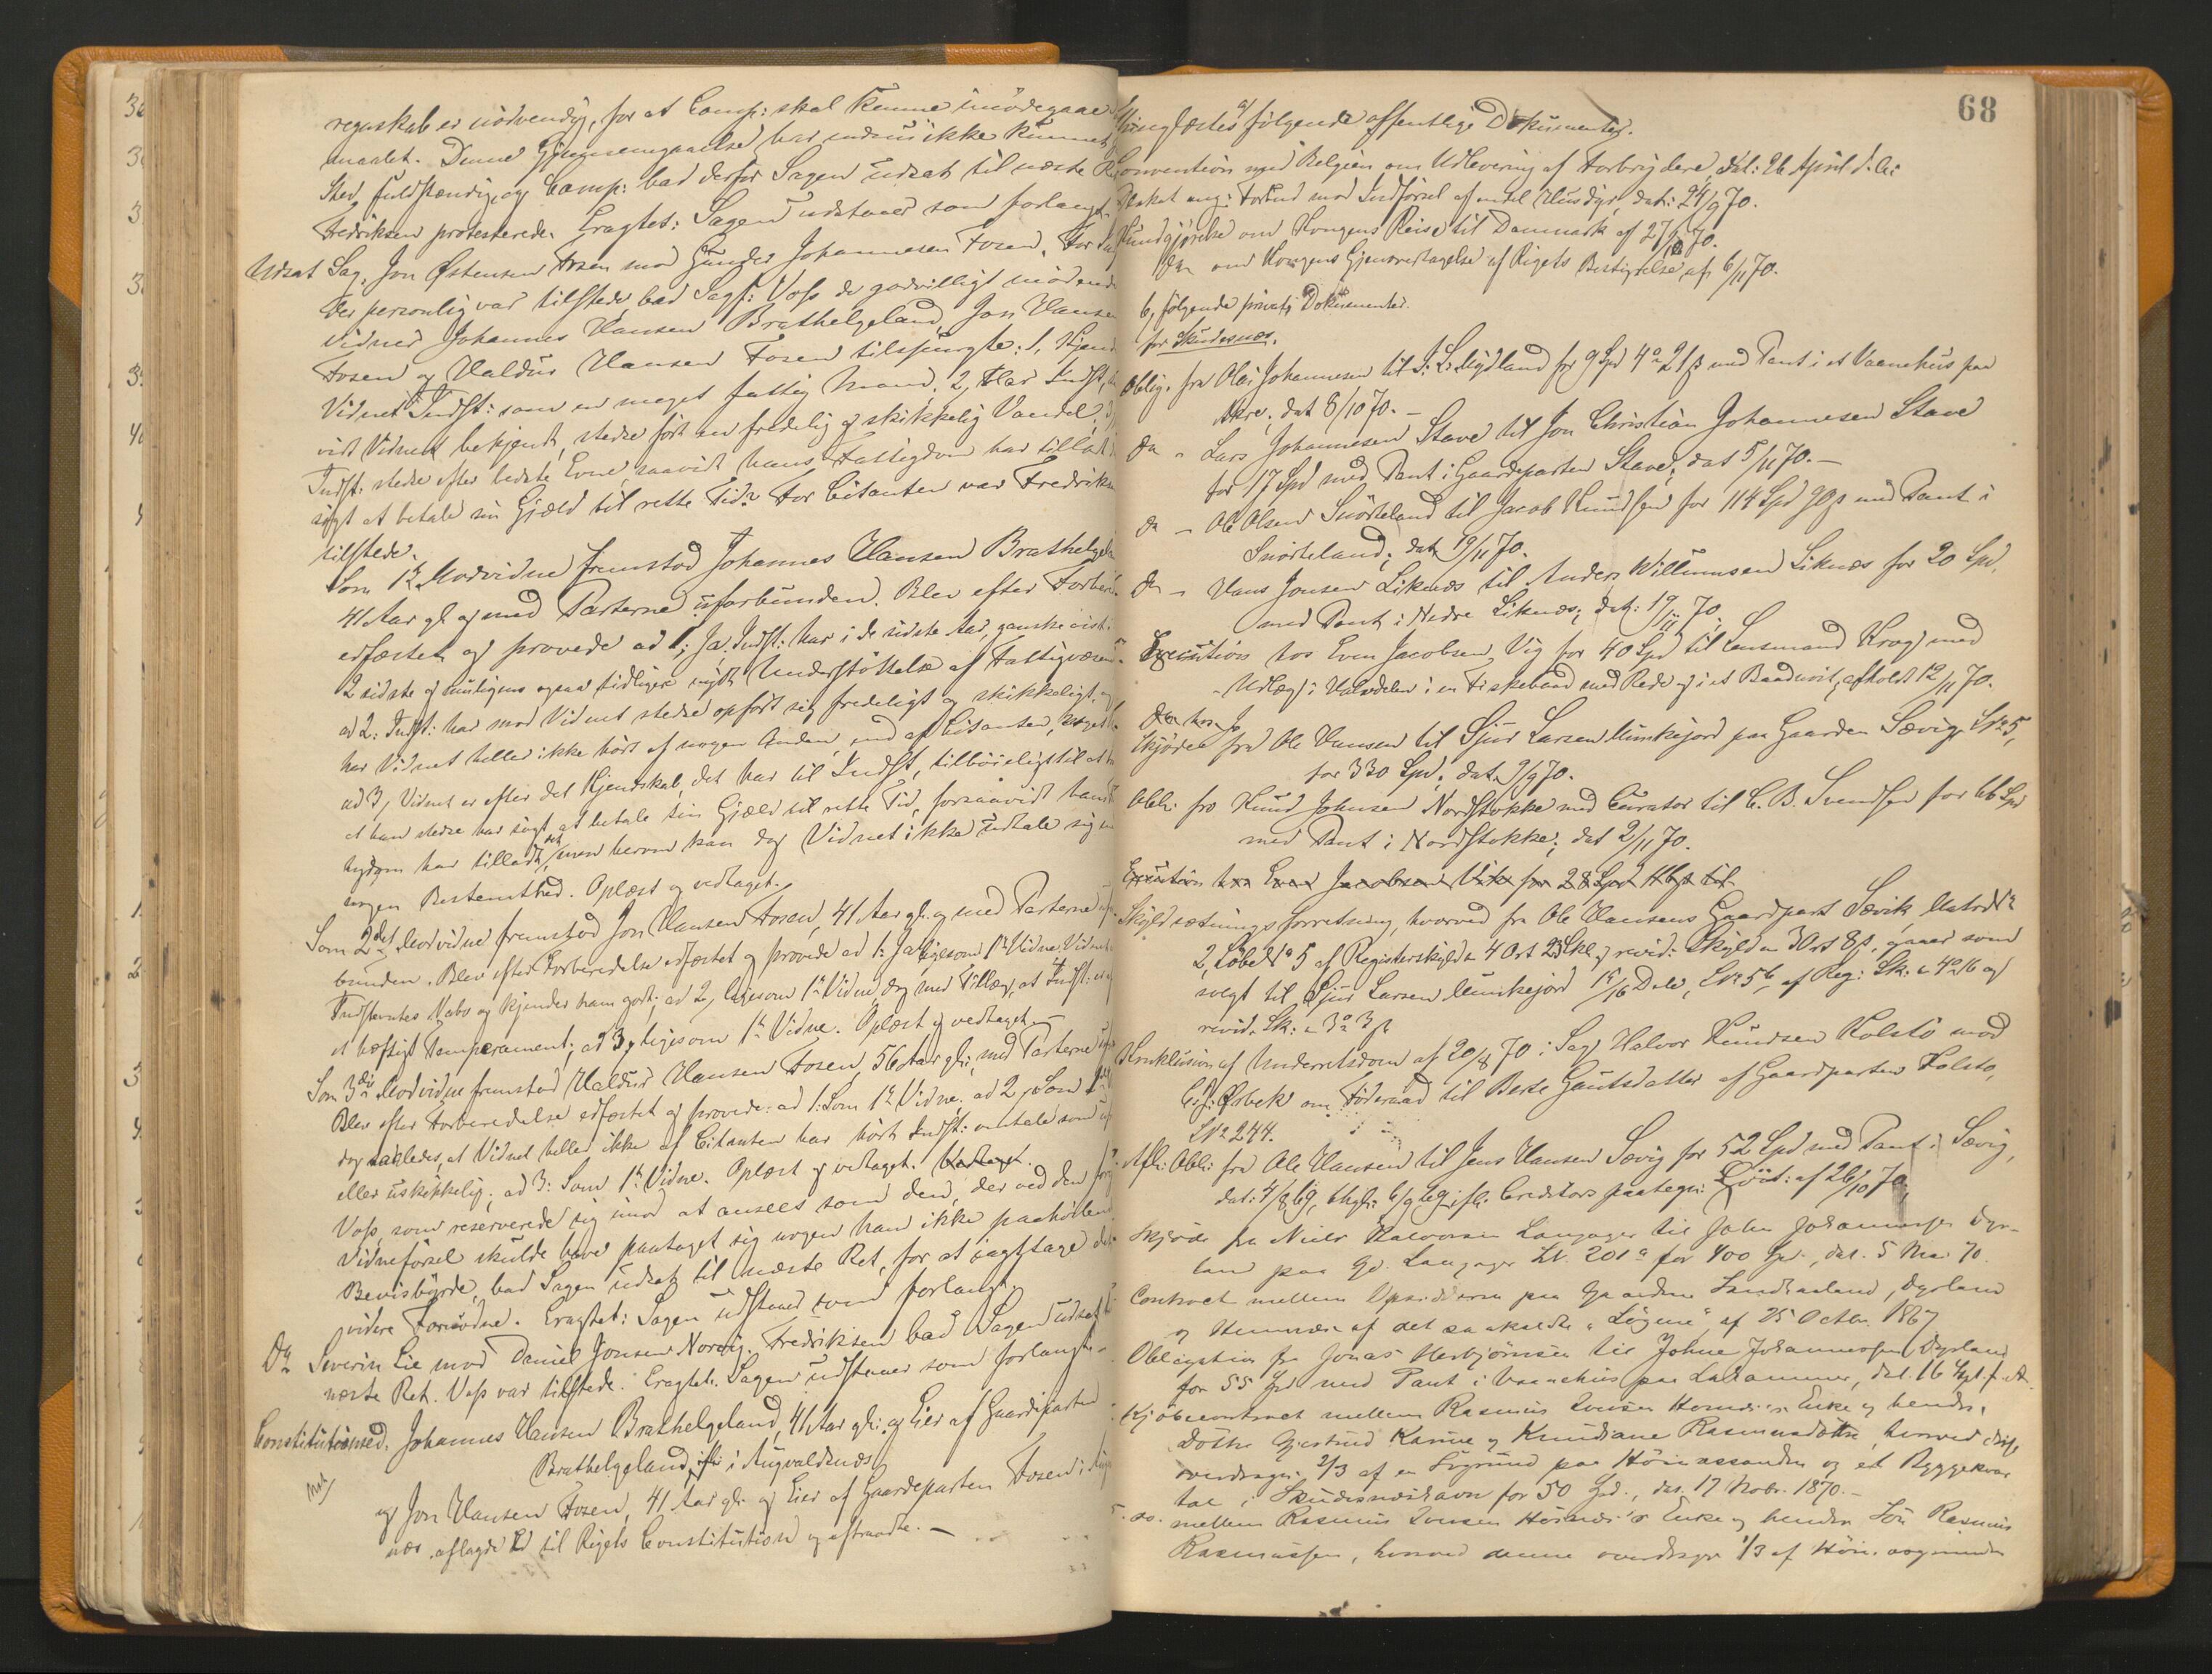 regnskab er nödvendig, for at Comp: skal kunne imödegaae
maalet. Denne Gjennemgaaelse har endnu ikke kunnet
Sted fuldstændig, og Comp: bad derfor Sagen udsat til næste
Fredriksen protesterede. Eragtet: Sagen udstaaer som forlangt.
Udsat Sag. Jon Østensen Fosen mod Gunder Johannesen Fosen. For
der personlig var tilstede bad Sagf: Voss de godvilligt mödende
Vidner Johannes Hansen Brathelgeland, Jon Hansen
Fosen og Haldur Hansen Fosen tilspurgte: 1, Kjender
Vidnet Indst: som en meget fattig Mand. 2, Har Indst,
vidt Vidnet bekjendt, stedse fört en fredelig og skikkelig Vandel.
Indst: stedse efter bedste Evne, saavidt hans Fattigdom har tilladt
sögt at betale sin Gjæld til rette Tid? For Citanten var Fredriksen
tilstede.
Som 1te Modvidne fremstod Johannes Hansen Brathelgeland
41 Aar gl. og med Parterne uforbunden. Blev efter Forbered
edfæstet og provede ad 1; Ja. Indst: har i de sidste Aar, ganske vist
2 sidste og rimligens ogsaa tidligere nydt Understöttelse af Fattigvæsen
ad 2: Indst: har mod Vidnet stedse opfört sig fredeligt og skikkeligt, og
har Vidnet heller ikke hört af nogen Anden, end af Citanten, noget
ad 3, Vidnet er efter det Kjendskab, det har til Indst, tilböieligt til at
at han stedse har sögt at betale sin Gjæld til rette Tid, forsaavidt hans
tigdom har tilladt, men herom kan dog Vidnet ikke udtale sig
nogen Bestemthed. Oplæst og vedtaget.
Som 2det Modvidne fremstod Jon Hansen Fosen, 41 Aar gl. og med Parterne
bunden. Blev efter Forberedelse edfæstet og provede ad 1: Ja ligesom 1te Vidne. Vidnet
Indstevntes Nabo og kjender ham godt; ad 2, ligesom 1te Vidne, dog med Tillæg, at Indst:
et hæftigt Temperament; ad 3, ligesom 1te Vidne. Oplæst og vedtaget.
Som 3die Modvidne fremstod Haldur Hansen Fosen, 56 Aar gl:, med Parterne
Blev efter Forberedelse edfæstet og provede: ad 1: Som 1te Vidne. ad 2, Som 1te
dog saaledes, at Vidnet heller ikke af Citanten har hört Indst: omtale som
eller uskikkelig; ad 3: Som 1te Vidne. Oplæst og vedtaget. Vedtaget.
Voss, som reserverede sig imod at ansees som den, der ved den
Vidneförsel skulde have paataget sig nogen ham ikke paahvilende
Bevisbyrde, bad Sagen udsat til næste Ret, for at iagttage
videre Fornödne. Eragtet: Sagen udstaaer som forlangt.
Do Severin Lie mod Daniel Jonsen Norvig. Fredriksen bad Sagen udsat
næste Ret. Voss var tilstede. Eragtet. Sagen udstaaer som forlangt.
Constitutionsed. Johannes Hansen Brathelgeland, 41 Aar gl: og Eier af Gaardparten
Brathelgeland, i Augvaldsnæs
og Jon Hansen Fosen, 41 Aar gl: og Eier af Gaardparten Fosen i
næs aflagde Ed til Rigets Constitution og aftraadte. —
68
Thinglæstes a) følgende offentlige Dokumenter.
Convention med Belgien om Udlevering af Forbrydere, dat: 26 April d. A:
Plakat ang: Forbud mod Indförsel af endel Husdyr, dat: 24/9 70.
Kundgjörelse om Kongens Reise til Danmark af 27/10 70.
do om Kongens Gjenovertagelse af Rigets Bestyrelse af 6/11 70.
b, følgende private Dokumenter.
for Skudesnæs.
Oblig. fra Ole Johannesen til S: L. Mydland for 9 Spd 4 o 21 ß med Pant i et Vaanehus paa
dat 8/10 70. —
do - Lars Johannesen Stave til Jon Christian Johannesen Stave
for 17 Spd med Pant i Gaardeparten Stave; dat 5/11 70. —
do - Ole Olsen Snörteland til Jacob Knudsen for 114 Spd 90 ß med Pant i
Snörteland; dat 19/11 70.
do - Hans Jonsen Liknæs til Anders Willumsen Liknæs for 20 Spd.
med Pant i Nedre Liknæs; dat: 19/11 70.
Execution hos Even Jacobsen Vig for 40 Spd til Lensmand Krog med
Udlæg i Halvdelen i en Fiskebaad med Rede og i et Baadnöst, afholdt 12/11 70.
do hos
Skjöde fra Ole Hansen til Sjur Larsen Munkejord paa Gaarden Sævig Lno 5,
for 330 Spd; dat 9/9 70.
Obli: fra Knud Johnsen Nordstokke med Curator til C. B. Svendsen for 66 Spd
med Pant i Nordstokke; dat 2/11 70.
Execution hos Even Jacobsen Vik for 28 Spd 46 ß til
Skyldsætningsforretning, hvorved fra Ole Hansens Gaardpart Sævik, Matr No
2, Löbe No 5 af Registerskyld 4 Ort 23 Skl og revid: Skyld 3 Ort 8 ß, gaaer som
solgt til Sjur Larsen Munkejord 15/16 Dele, Lno 5b, af Reg: Sk: 4 o 16 og
revid. Sk: 3 o 3 ß
Konklusion af Underretsdom af 20/8 70 i Sag Halvor Knudsen Kolstö mod
Ørbek om Föderaad til Berte Gautsdatter af Gaardparten Kolstö,
LNo 244.
Afl: Obli: fra Ole Hansen til Jens Hansen Sævig for 52 Spd med Pant i Sævig,
dat: 4/8 69, thgl: 6/9 69; fl: Creditors paategn: Qvit: af 26/10 70.
Skjöde fra Niels Halvorsen Langager til John Johannessen Dyr-
land paa Gd. Langager Lb. 201a for 400 Spd., dat. 5 Mai 70
Contract mellem Opsidderne paa Gaardene Sandhaaland, Dyrland
og af det saakaldte "Lögene" af 25 Octbr. 1867
Obligation fra Jonas Herbjörnsen til Johne Johannessen Dyrland
for 55 Spd med Pant i Vaanehus paa Ladammer, dat. 16 Sept. f. A.
Kjöbecontract mellem Rasmus Iversen Hemnæs's Enke og hendes
Döttre Gjertrud Karine og Knudiane Rasmusdöttre, hvorved disse
overdrages 2/3 af en Fögrund paa Hönsasanden og et Byggekvar
tal i Skudesnæshavn for 50 Spd., dat. 17 Novbr. 1870. —
do. mellem Rasmus Iversen Hemnæs's Enke og hendes Sön Rasmus
Rasmussen, hvorved denne overdrages 1/3 af